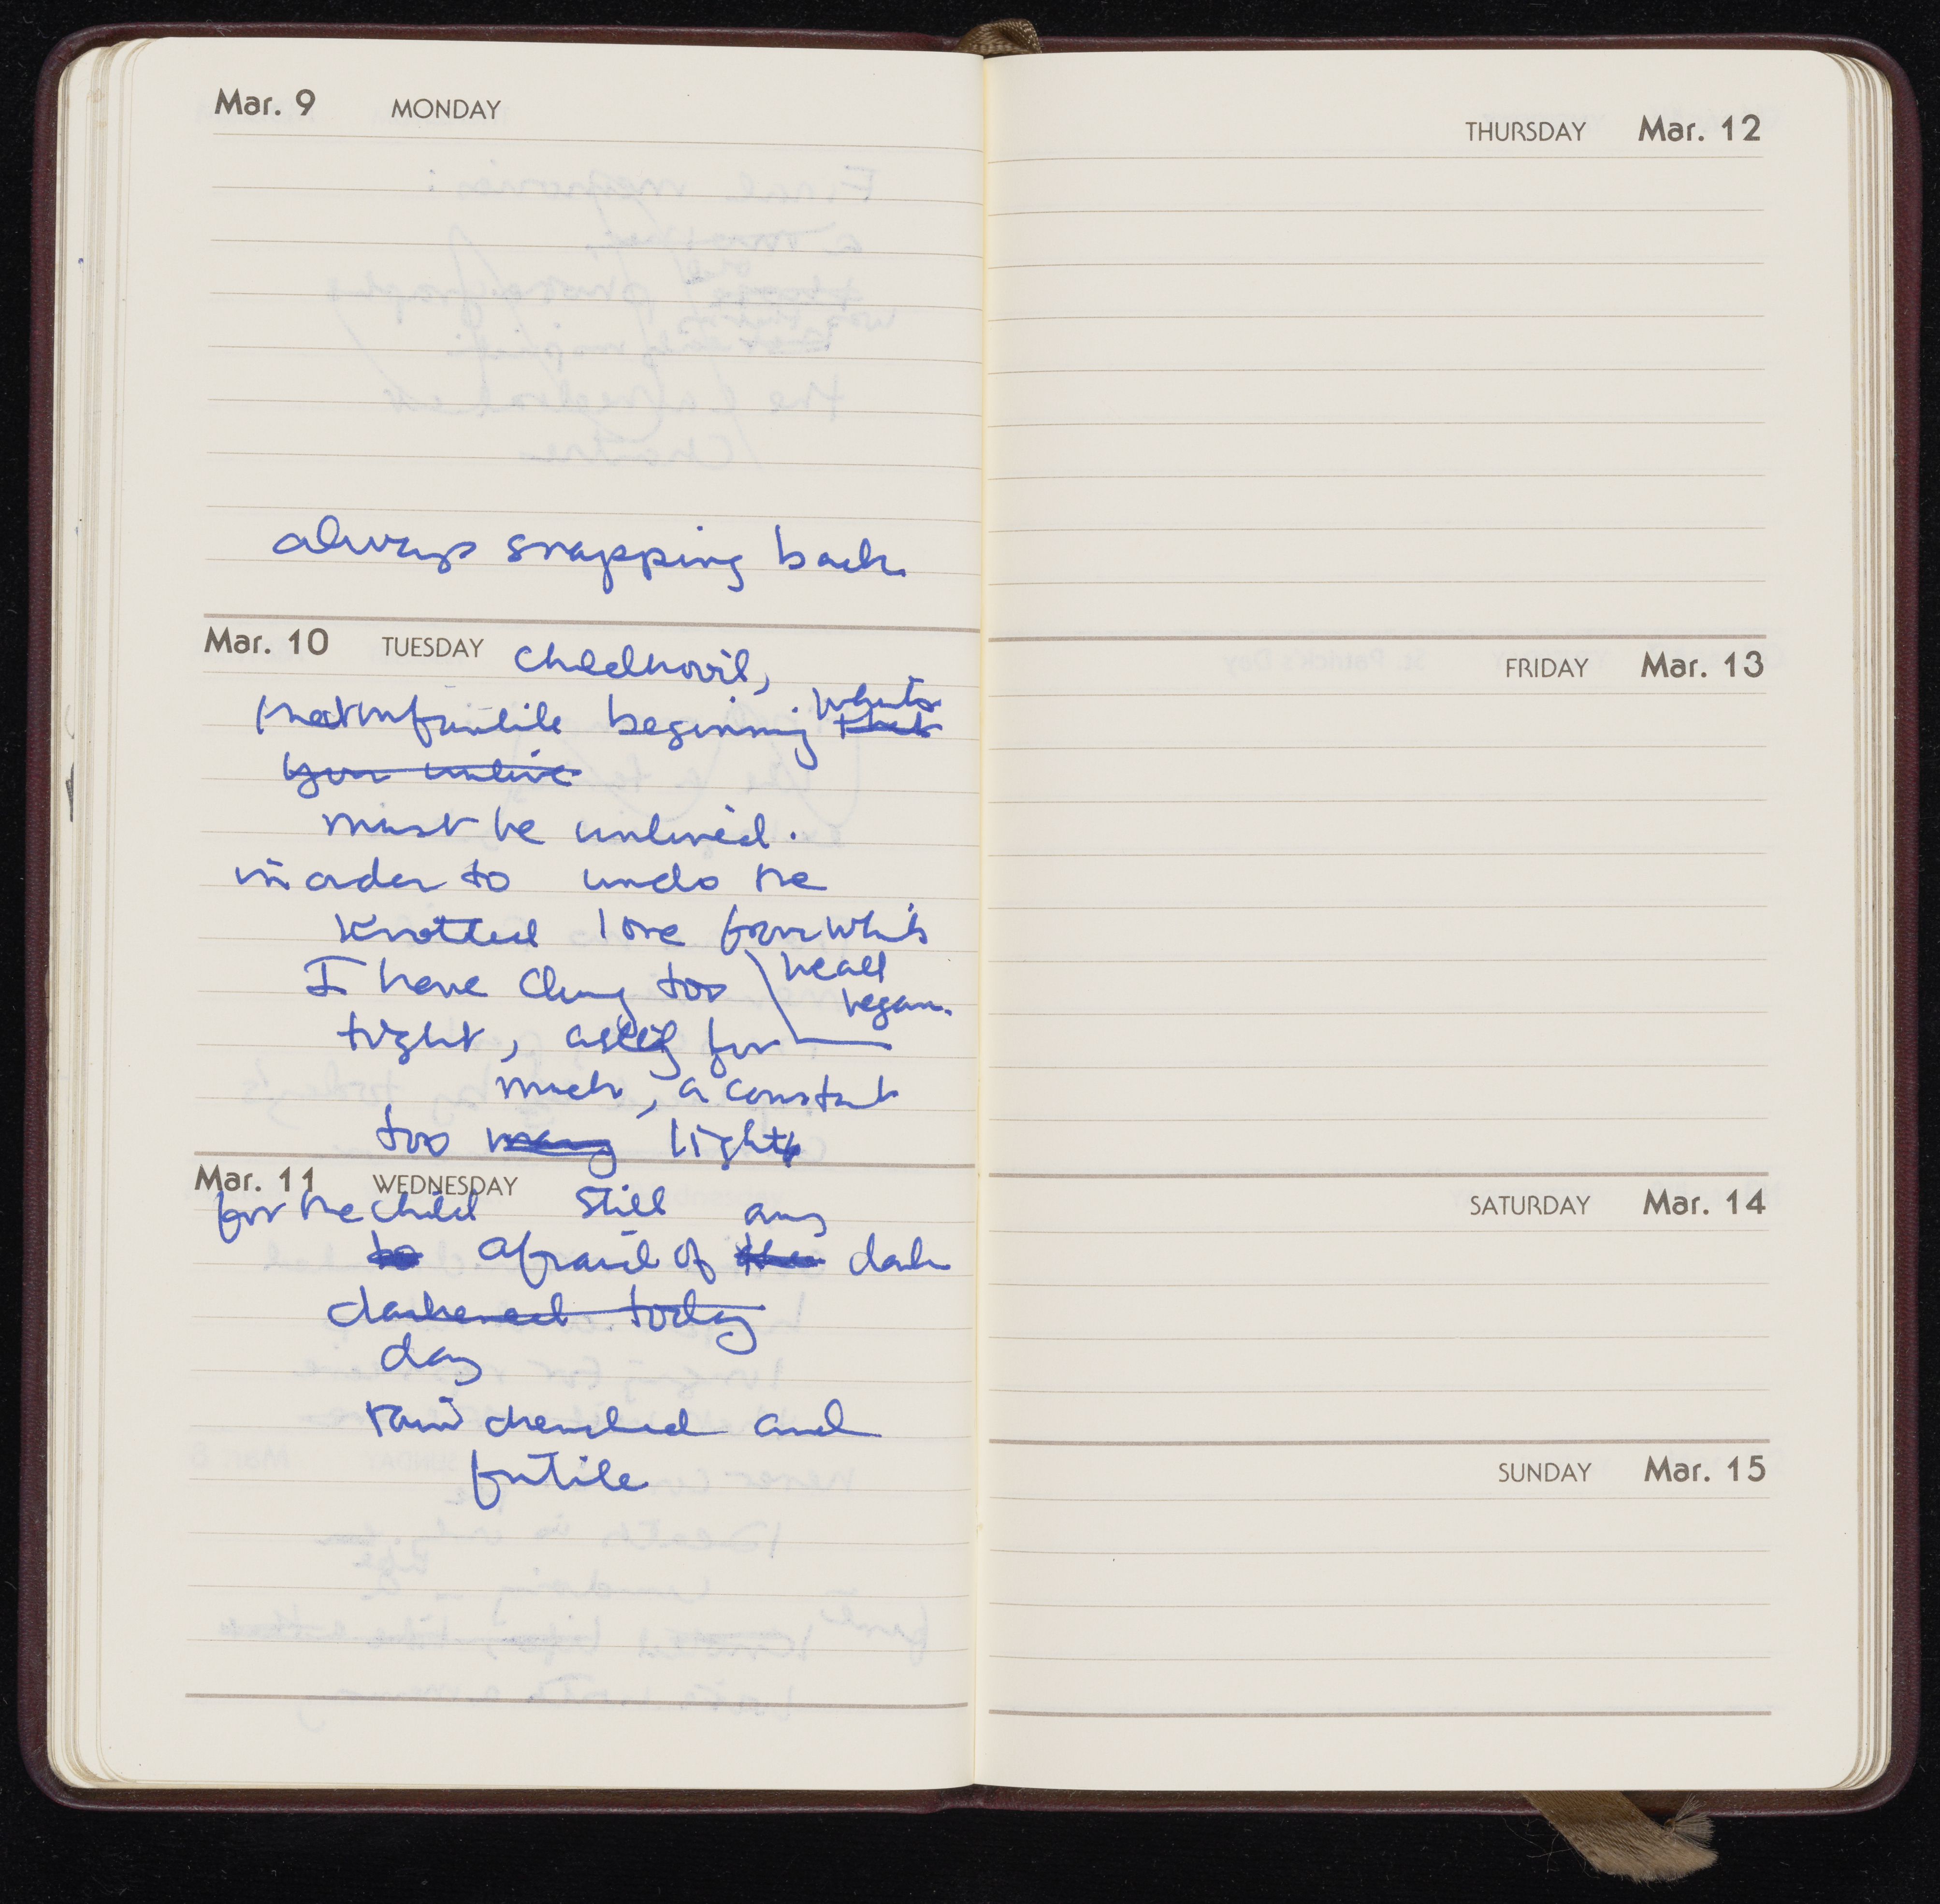 Mar. 9 MONDAY
always snapping back
Mar. 10 TUESDAY childhood,
that infantile beginning what's
that
your unlive
must be unlived.
in order to undo the
knotted love from which
it all
began.
I have clung too
tight, asking for
much, a constant
too many light
Mar. 11 WEDNESDAY
for the child still
to afraid of the dark
darkened today
day
rain drenched and
futile
THURSDAY Mar. 12
FRIDAY Mar. 13
SATURDAY Mar. 14
SUNDAY Mar. 15